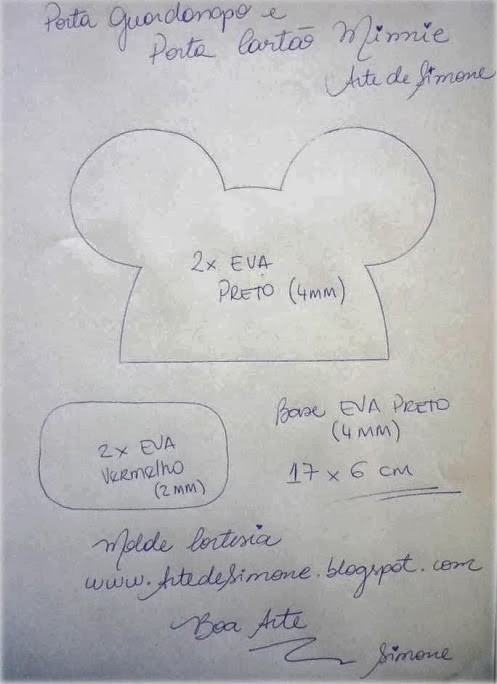 Porta Guardanapo e
Porta Cartão Minnie
Arte de Simone
2x EVA
PRETO (4MM)
Base EVA PRETO
(4MM)
17 x 6 cm
2x EVA
Vermelho
(2MM)
Molde Cortesia
www.ArtedeSimone.blogspot.com
Boa Arte
Simone